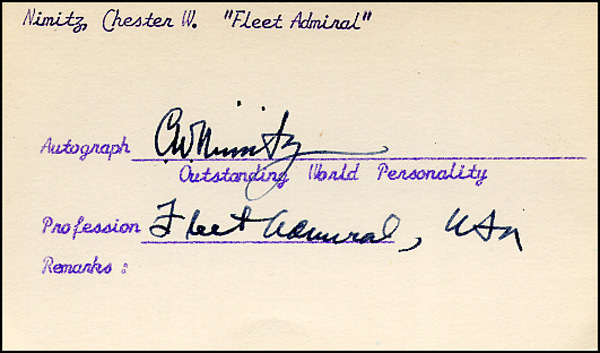 Nimitz, Chester W. "Fleet Admiral"
Autograph C.W. Nimitz
Outstanding World Personality
Profession Fleet Admiral, USN
Remarks :